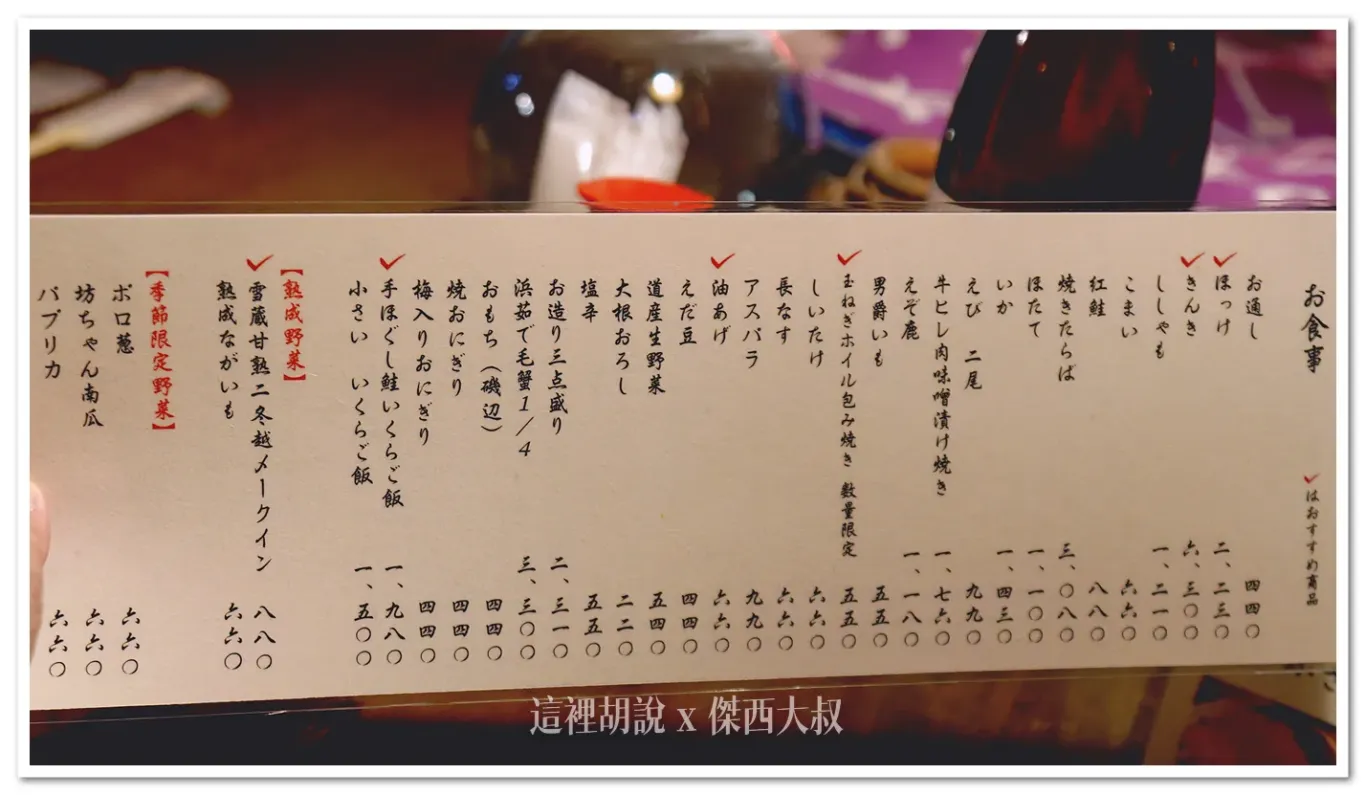 お食事
✓はおすすめ商品
お通し 四四〇
✓ほっけ 二、二三〇
✓きんき 六、三〇〇
ししゃも 一、二一〇
こまい 六六〇
紅鮭 八八〇
焼きたらば 三、〇八〇
ほたて 一、一〇〇
いか 一、四三〇
えび 二尾 九九〇
牛ヒレ肉味噌漬け焼き 一、七六〇
えぞ鹿 一、一八〇
男爵いも 五五〇
✓玉ねぎホイル包み焼き 数量限定 五五〇
しいたけ 六六〇
長なす 六六〇
アスパラ 九九〇
✓油あげ 六六〇
えだ豆 四四〇
道産生野菜 五四〇
大根おろし 二二〇
塩辛 五五〇
お造り三点盛り 二、三一〇
浜茹で毛蟹1/4 三、三〇〇
おもち(磯辺) 四四〇
焼おにぎり 四四〇
梅入りおにぎり 四四〇
✓手ほぐし鮭いくらご飯 一、九八〇
小さい いくらご飯 一、五〇〇
【熟成野菜】
✓雪蔵甘熟二冬越メークイン 八八〇
熟成ながいも 六六〇
【季節限定野菜】
ポロ葱 六六〇
坊ちゃん南瓜 六六〇
パプリカ 六六〇
這裡胡說 x 傑西大叔